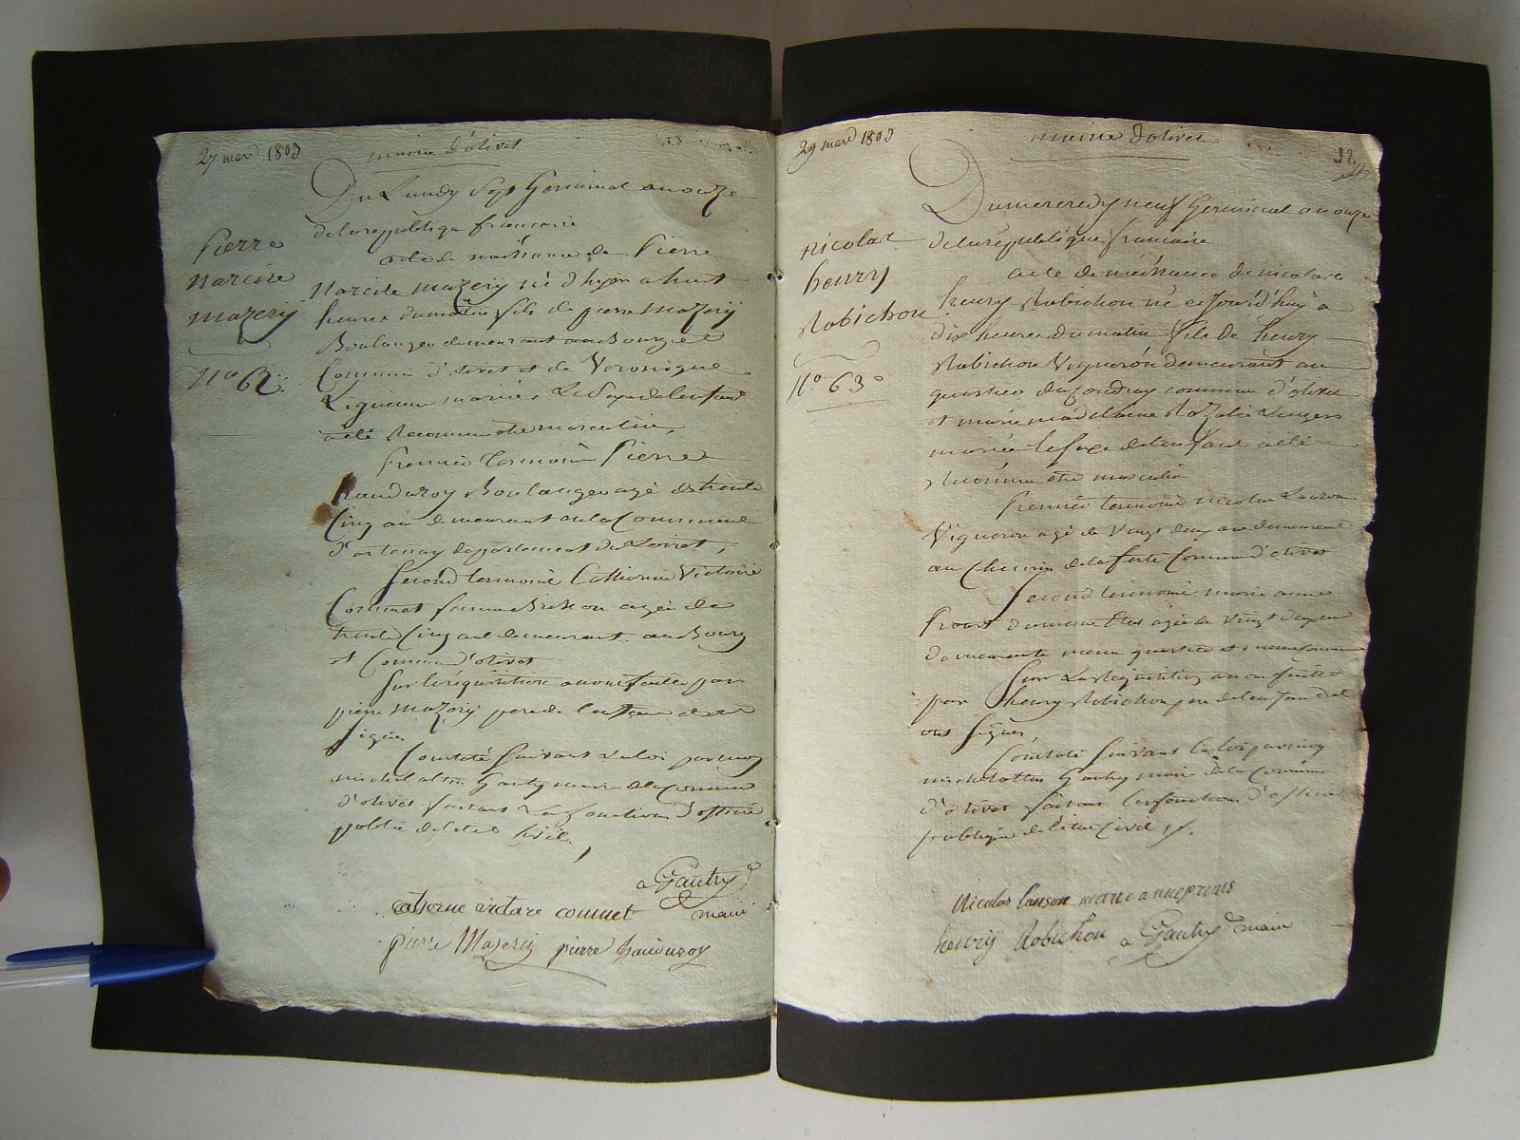 27 mars 1803
mairie d'olivet
Du Lundy Sept Germinal an onze
de la republique francaise
Pierre
narcisse
mazery
n° 62
acte de naissance de Pierre
Narcisse mazery né d'hyer a huit
heures du matin fils de pierre Mazerÿ
Boulanger demeurant au Bourg et
Commune d'olivet et de Veronique
mariés Le Sexe de lenfant
a été Reconnu etre masculin,
Premier temoin Pierre
Boulanger agé de trente
Cinq ans demeurant en la Commune
d'artenay departement du Loiret,
Second temoin Catherine Victoire
Commet femme agée de
trente Cinq ans demeurant au Bourg
et Commune d'olivet
Sur la requisition a nous faite par
pierre Mazerÿ pere de l'enfant et a
signé
Constaté Suivant la loi par moy
michel altin Gautry maire de la Commune
d'olivet faisant Les fonctions d'officié
public de letat Civil,
a Gautry
maire
catherine victore commet
pierre Mazerÿ pierre hauduroy
29 mars 1803
mairie d'olivet
32.
Du mercredy neuf Germinal an onze
de la republique francaise
nicolas
henry
Robichon
N° 63
acte de naissance de nicolas
henry Robichon né ce Jourd'huy a
dix heures du matin fils de henry
Robichon Vigneron demeurant au
quartier du Coudray commune d'olivet
et marie madelaine Rozalie
mariés le sexe de lenfant a été
Reconnu etre masculin
Premier temoin nicolas Lanson
Vigneron agé de Vingt deux ans demeurant
au Chemin de la ferté Commune d'olivet
Second temoin marie anne
agée de Vingt deux ans
demeurante meme quartier et meme Commune
Sur La requisition a nous faite
par henry Robichon pere de lenfant et
ont signés
Constaté Suivant la loi par moy
michel altin Gautry maire de la Commune
d'olivet faisant les fonctions d'officié
publique de l'etat Civil
Nicolas lanson marie anne
henrÿ Robichon a Gautry maire